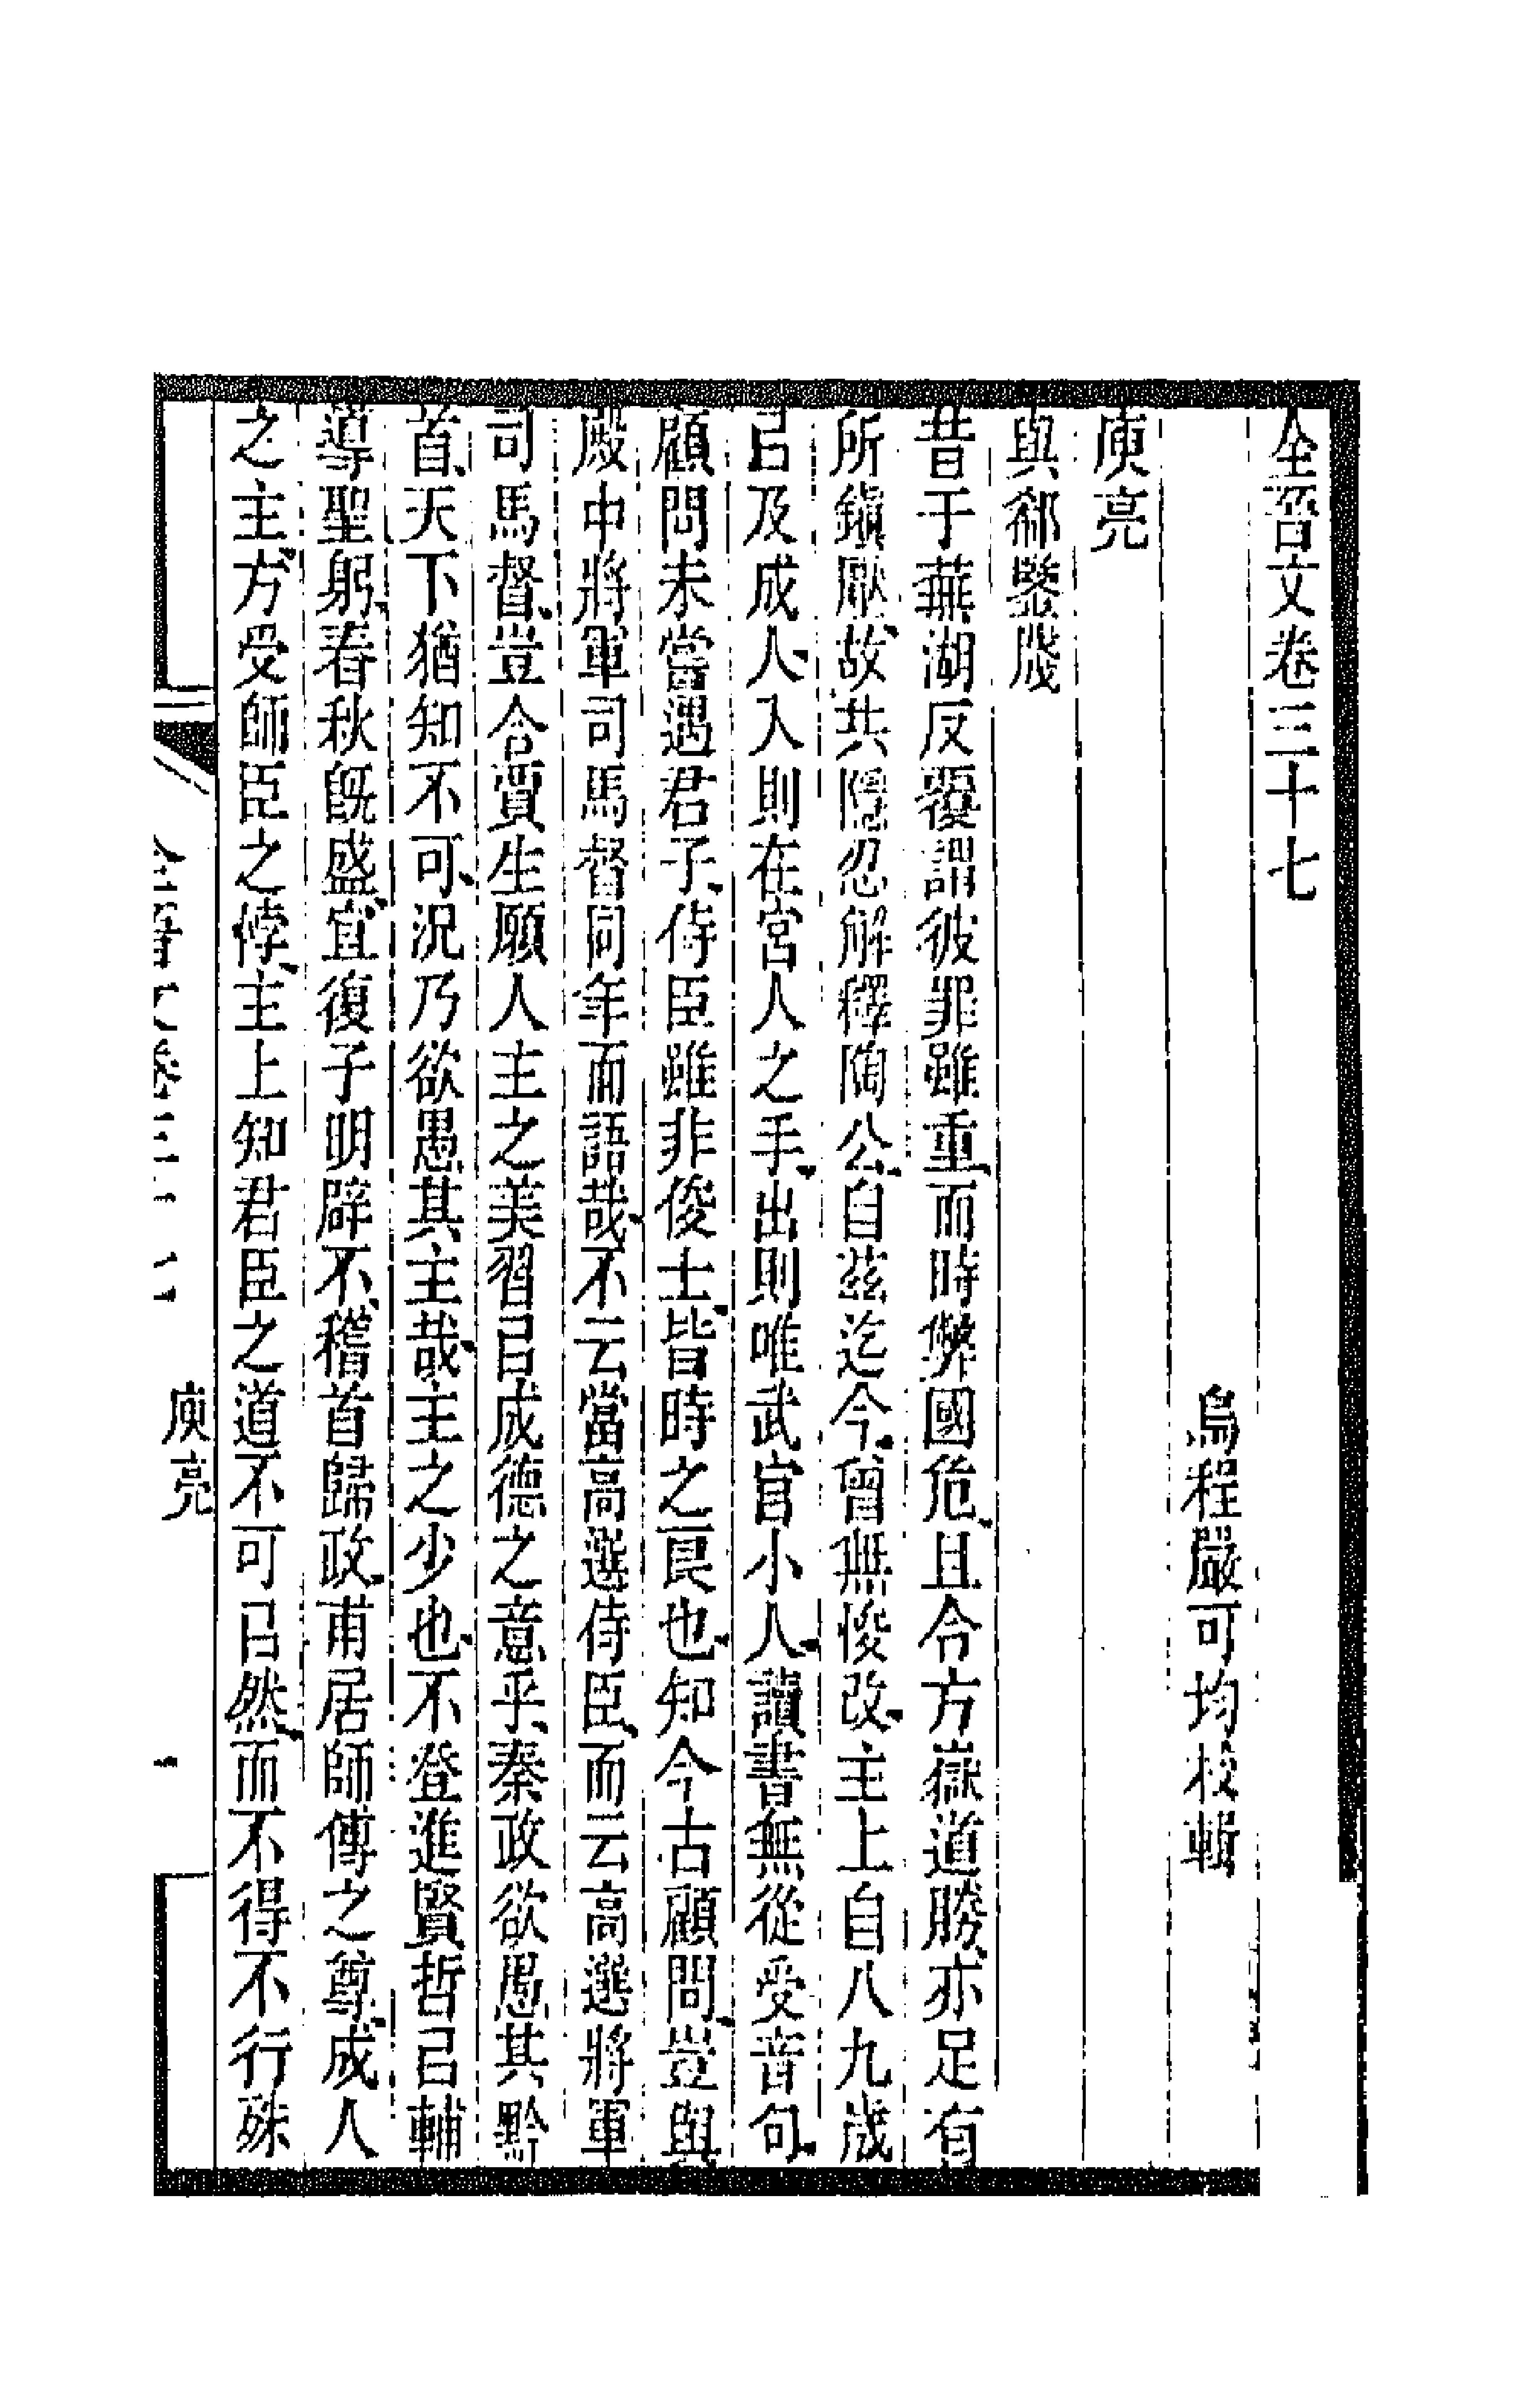 全晉文卷三十七
烏程嚴可均校輯
庾亮
與郗鑒牋
昔于蕪湖反覆謂彼罪雖重、而時弊國危、且令方嶽道勝、亦足有
所鎭壓、故共隱忍解釋陶公、自茲迄今、曾無悛改、主上自八九歲
㠯及成人、入則在宮人之手、出則唯武官小人、讀書無從受音句、
顧問未嘗遇君子、侍臣雖非俊士、皆時之良也、知今古顧問、豈與
殿中將軍司馬督同年而語哉、不云當高選侍臣、而云高選將軍
司馬督、豈合賈生願人主之美習㠯成德之意乎、秦政欲愚其黔
首、天下猶知不可、況乃欲愚其主哉、主之少也、不登進賢哲㠯輔
導聖躬、春秋旣盛、宜復子明辟、不稽首歸政、甫居師傅之尊、成人
之主、方受師臣之悖、主上知君臣之道不可㠯然、而不得不行殊
庾亮